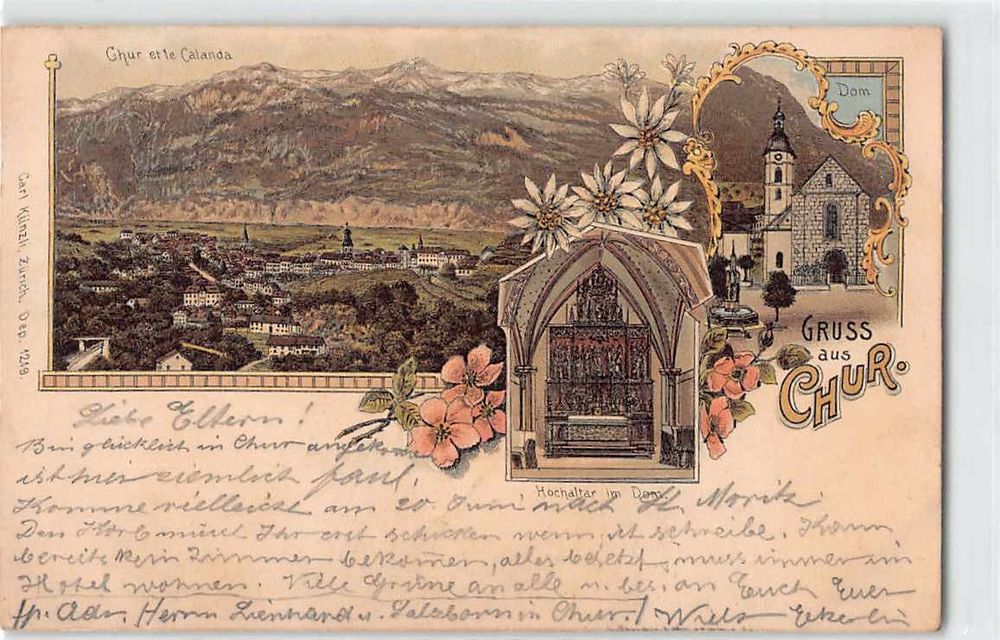 Chur et le Calanda
Dom
Carl Künzli, Zürich, Dep. 1219.
GRUSS
aus
CHUR.
Hochaltar im Dom.
Liebe Eltern!
Bin glücklich in Chur angekom
ist hier ziemlich faul.
Komme vielleicht am 20 Juni nach St. Moritz
Den müsst Ihr erst schicken wenn ich schreibe. Kann
bereits kein Zimmer bekommen, alles besetzt, muss immer im
Hotel wohnen. Viele Grüsse an alle u. bes. an Euch Euer
p. Adr. Herrn Lienhard u. Salzborn in Chur.